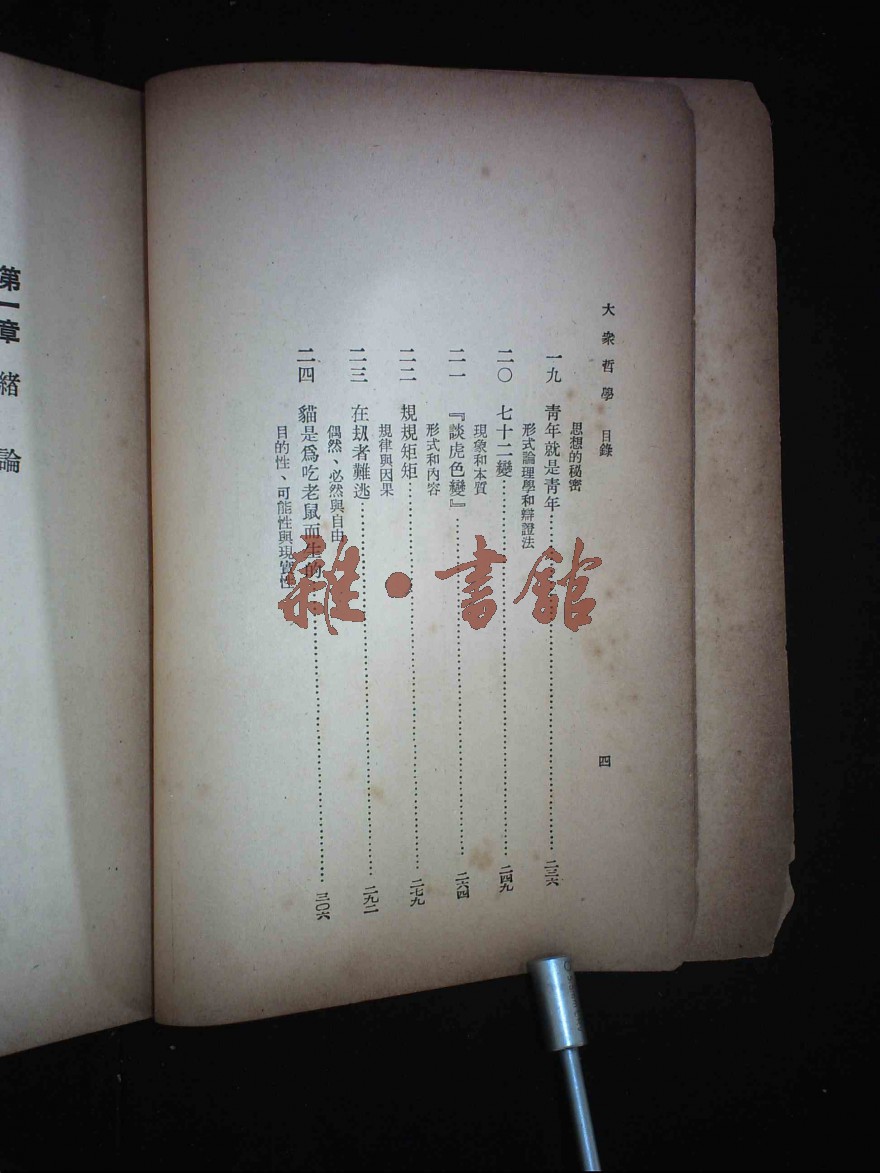 大衆哲學 目錄 四
思想的秘密
一九 靑年就是靑年……二三六
形式論理學和辯證法
二〇 七十二變……二四九
現象和本質
二一 『談虎色變』……二六四
形式和內容
二二 規規矩矩……二七九
規律與因果
二三 在劫者難逃……二九二
偶然、必然與自由
二四 貓是爲吃老鼠而生的……三〇六
目的性、可能性與現實性
第一章 緒論
雜·書館